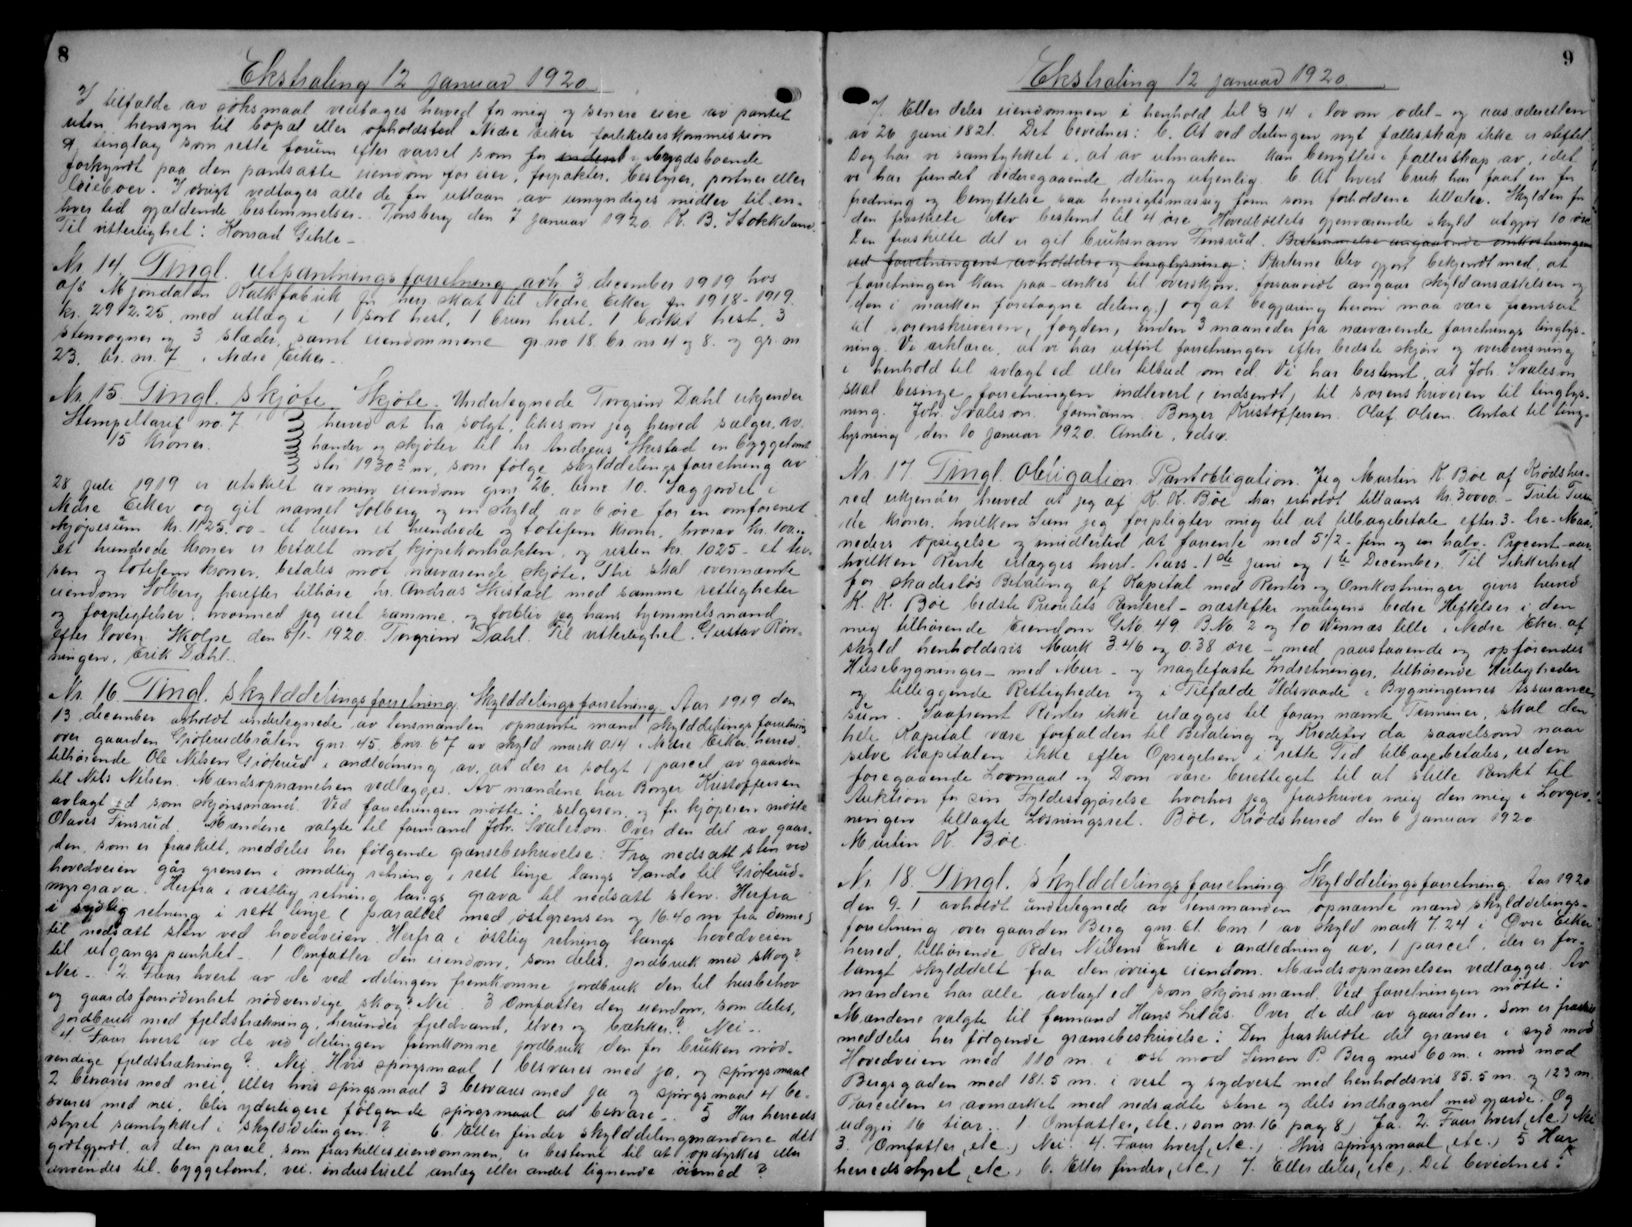 8
Ekstrating 12 januar 1920
I tilfælde av søksmaal vedtages herved for mig og senere eiere av pantet
uten hensyn til bopæl eller opholdsted Nedre Eiker forlikelseskommission
og tinglag som rette forum efter varsel som for indenb bygdsboende
forkyndt paa den pantsatte eiendom for eier, forpakter, bestyrer, portner eller
leieboer. I øvrigt vedtages alle de for utlaan av umyndiges midler til en-
hver tid gjældende bestemmelser. Tønsberg den 7 januar 1920. K. B. Stokkeland
Til vitterlighet: Konrad Gehle -
Nr. 14. Tingl. utpantningsforretning avh. 3 december 1919 hos
a/s Mjøndalen Kalkfabrik for herr. skat til Nedre Eiker for 1918-1919.
kr. 2912.25. med utlæg i 1 sort hest, 1 brun hest, 1 borket hest, 3
stenvogner og 3 slæder, samt eiendommene gr. no 18 br. nr 4 og 8. og gr. nr
23. br. nr. 7 i Nedre Eiker -
Nr. 15. Tingl. skjøte Skjøte. Undertegnede Torgrim Dahl erkjender
Stempeltarif no. 7 herved at ha solgt, likesom jeg herved sælger, av-
15 kroner. hænder og skjøter til hr. Andreas Skistad en byggetomt
stor 1930² m, som følge skylddelingsforretning av
28 juli 1919 er utskilt av min eiendom gnr 26. bnr 10. Sagjordet i
Nedre Eiker og git navnet Solberg og en skyld av 6 øre for en omforenet
kjøpesum kr. 1125.00 - et tusen et hundrede og totifem kroner, hvorav kr. 100.-
et hundrede kroner er betalt mot kjøpekontrakten, og resten kr. 1025 - et tu-
sen og totifem kroner, betales mot nærværende skjøte. Thi skal ovennævnte
eiendom Solberg herefter tilhøre hr. Andras Skistad med samme rettigheter
og forpligtelser, hvormed jeg eiet samme, og forblir jeg hans hjemmelsmand
efter loven. Skolpe den 8/1-1920. Torgrim Dahl. Til vitterlighet. Gustav Røn-
ningen, Erik Dahl.
Nr. 16 Tingl. Skylddelingsforretning Skylddelingsforretning Aar 1919 den
13 december avholdt undertegnede av lensmanden opnævnte mænd skylddelingsforretning
over gaarden Grøterudbråten gnr. 45. bnr. 67 av skyld mark 0.14 i Nedre Eiker herred
tilhørende Ole Nilsen Grøterud i andledning av, at der er solgt 1 parcel av gaarden
til Nils Nilsen. Mændsopnævnelsen vedlægges. Av mændene har Borger Kristoffersen
avlagt ed som skjønsmand. Ved forretningen møtte: selgeren, og for kjøperen møtte
Olaves Finsrud. Mændene valgte til formand Joh. Svaleson. Over den del av gaar-
den, som er fraskilt, meddeles her følgende grænsebeskrivelse: Fra nedsatt sten ved
hovedveien går grensen i nordlig retning i rett linje langs Sando til Grøterud-
myrgrava. Herfra i vestlig retning langs grava til nedsatt sten. Herfra
i sydlig retning i rett linje (parallel med østgrensen og 16.40 m fra denne)
til nedsatt sten ved hovedveien. Herfra i østlig retning langs hovedveien
til utgangspunktet - 1 Omfatter den eiendom, som deles, jordbruk med skog?
Nei - 2 Faar hvert av de ved delingen fremkomne jordbruk den til husbehov
og gaardsfornødenhet nødvendige skog? Nei 3 Omfatter den eiendom, som deles,
jordbruk med fjeldstrækning, herunder fjeldvand, elver og bækker? Nei -
4 Faar hvert av de ved delingen fremkomne jordbruk den for bruken nød-
vendige fjeldstrækning? Nei. Hvis spørgsmaal 1 besvares med ja, og spørgsmaal
2 besvares med nei, eller hvis spørgsmaal 3 besvares med ja og spørgsmaal 4 be-
svares med nei, blir yderligere følgende spørgsmaal at besvare - 5 Har herreds-
styret samtykket i skylddelingen? 6. Eller finder skylddelingsmændene det
godtgjort, at den parcel, som fraskilles eiendommen, er bestemt til at opdyrkes eller
anvendes til byggetomt, vei, industrielt anlæg eller andet lignende øiemed?
9
Ekstrating 12 januar 1920
7 Eller deles eiendommen i henhold til § 14 i lov om odel- og aasædesretten
av 26 juni 1821. Det bevidnes: b. At ved delingen nyt fællesskap ikke er stiftet
Dog har vi samtykket i, at av utmarken kan benyttes i fællesskap av, idet
vi har fundet videregaaende deling utjenlig. b At hvert bruk har faat en for
fredning og benyttelse saa hensigtsmæssig form som forholdene tillater. Skylden for
den fraskilte blev bestemt til 4 øre. Hovedbøllets gjenværende skyld utgjør 10 øre
Den fraskilte del er git bruksnavn Finsrud. Bestemmelse angaaende omkostningene
ved forretningens avholdelse og tinglysning: Parterne blev gjort bekjendt med, at
forretningen kan paa-ankes til overskjøn (forsaavidt angaar skyldansættelsen og
den i marken foretagne deling) og at begjæring herom maa være fremsat
til sorenskriveren, fogden, inden 3 maaneder fra nærværende forretnings tinglys-
ning. Vi erklærer, at vi har utført forretningen efter bedste skjøn og overbevisning
i henhold til avlagt ed eller tilbud om ed. Vi har bestemt, at Joh. Svaleson
skal besørge forretningen indlevert, indsendt, til sorenskriveren til tinglys-
ning. Joh. Svaleson. formann. Borger Kristoffersen. Olaf Olsen. Antat til ting-
lysning den 10 januar 1920. Amlie, edsv.
Nr. 17 Tingl. Obligation. Pantobligation. Jeg Martin K Bøe af Krødsher-
red erkjender herved at jeg af K. K. Bøe har erholdt tillaans kr. 30000. - Triti Tusin-
de kroner. hvilken Sum jeg forpligter mig til at tilbagebetale efter 3 - tre - Maa-
neders opsigelse og imidlertid at forrente med 5 1/2 - fem og en halv - Procent aar.
hvilken Rente erlægges hvert Aars 1ste Juni og 1ste December. Til Sikkerhed
for skadesløs Betaling af Kapital med Renter og Omkostninger gives herved
K. K. Bøe bedste Prioritets Panteret - næstefter muligens bedre Hæftelser i den
mig tilhørende Eiendom GNo 49 BNo 2 og 10 Vinnæs lille i Nedre Eker af
skyld henholdsvis Mark 3.46 og 0.38 øre - med paastaaende og opførendes
Husebygninger - med Mur- og naglefaste Indretninger, tilhørende Herligheder
og tilliggende Rettigheder og i Tilfælde Ildsvaade i Bygningernes Assurance-
sum. Saafremt Renter ikke erlægges til foran nævnte Terminer, skal den
hele Kapital være forfalden til Betaling og Kreditor da saavelsom naar
selve Kapitalen ikke efter Opsigelsen i rette Tid tilbagebetales, uden
foregaaende Lovmaal og Dom være berettiget til at stille Pantet til
Auktion for sin Fyldestgjørelse hvorhos jeg fraskriver mig den mig i Lovgiv-
ningen tillagte Løsningsret. Bøe, Krødsherred den 6 januar 1920
Martin K. Bøe.
Nr. 18. Tingl. Skylddelingsforretning Skylddelingsforretning. Aar 1920
den 9-1 avholdt undertegnede av lensmanden opnævnte mænd skylddelings-
forretning over gaarden Berg gnr. 61. bnr. 1 av skyld mark 7.24 i Øvre Eiker
herred, tilhørende Peder Nilsens Enke i andledning av, 1 parcel, der er for-
langt skylddelt fra den øvrige eiendom. Mændsopnævnelsen vedlægges. Av
mændene har alle avlagt ed som skjønsmænd. Ved forretningen møtte:
Mændene valgte til formand Hans Lilaas. Over de del av gaarden, som er fraskilt
meddeles her følgende grænsebeskrivelse: Den fraskildte del grænser i syd mod
Hovedveien med 110 m. i øst mod Simen P. Berg med 60 m. i nord mod
Bergsgaden med 181.5 m. i vest og sydvest med henholdsvis 85.5 m. og 123 m.
Parcellen er avmærket med nedsatte stene og dels indhægnet med gjærde. Og
utgjør 16 tiar. 1 Omfatter, etc. (som nr. 16 pag 8) Ja. 2. Faar hvert, etc.) Nei
3 Omfatter, etc.) Nei. 4. Faar hvert, etc.) Hvis spørgsmaal, etc.) 5 Har
herredsstyret, etc.) 6. Eller finder, etc.) 7. Eller deles, etc.). Det bevidnes: